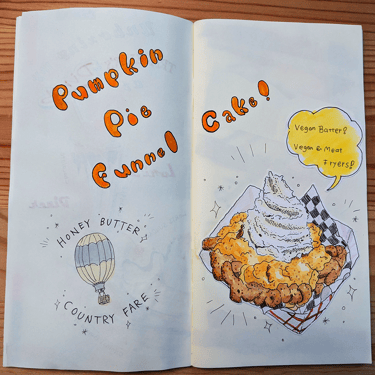 Pumpkin
Pie
Funnel
Cake!
Vegan Batter!
Vegan & Meat
Fryers!
HONEY BUTTER
COUNTRY FARE